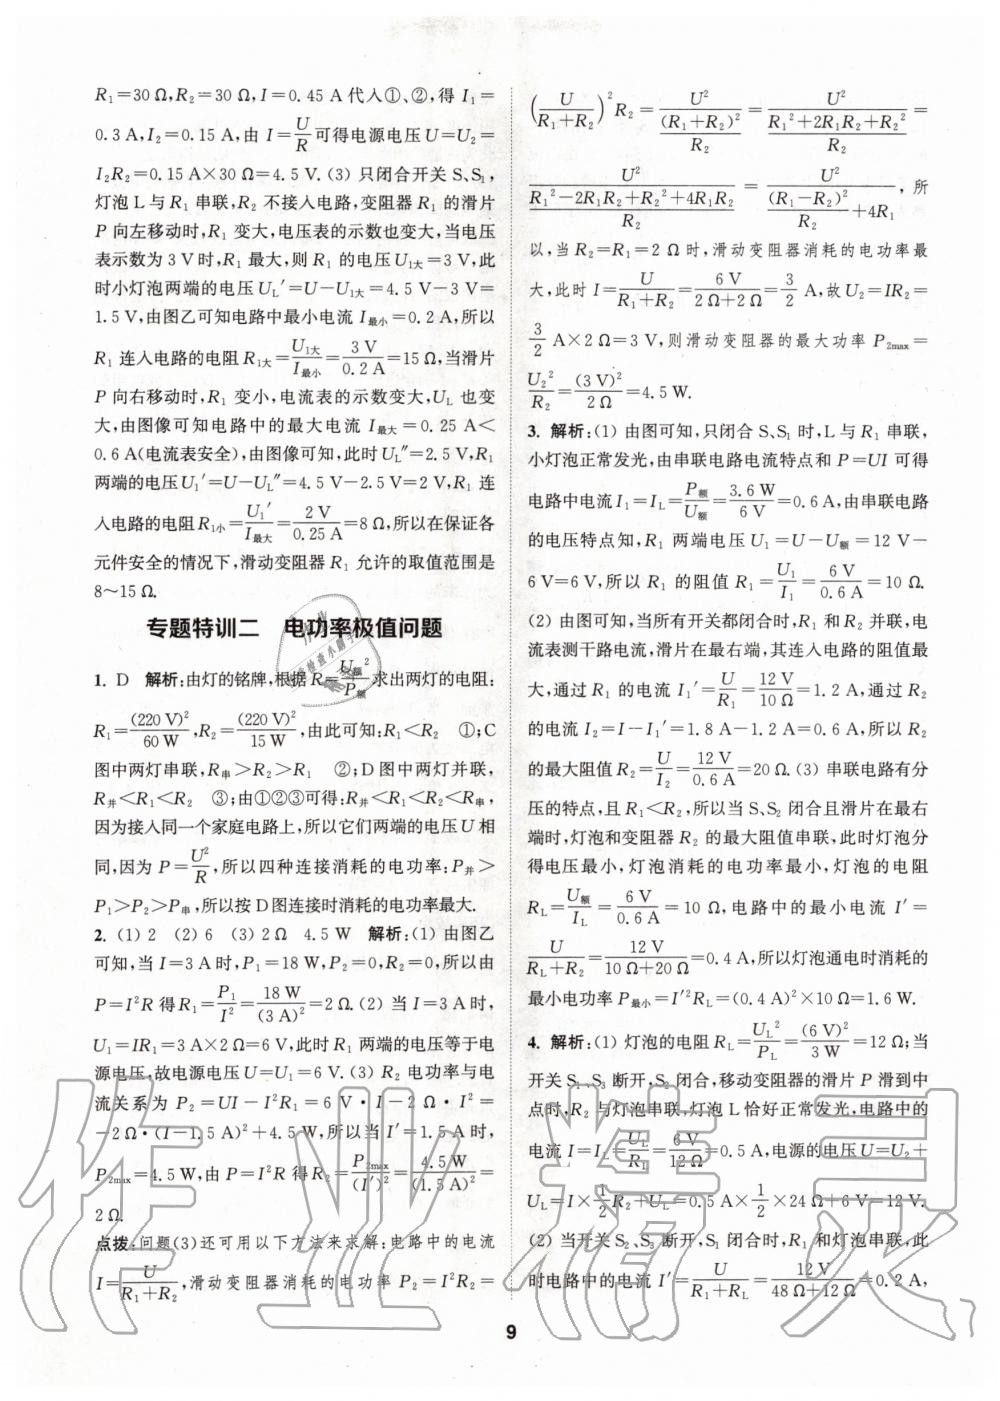 R₁=30 Ω,R₂=30 Ω,I=0.45 A代入①、②,得 I₁=
0.3 A,I₂=0.15 A,由 I=U/R可得电源电压U=U₂=
I₂R₂=0.15 A×30 Ω=4.5 V.(3) 只闭合开关S、S₁,
灯泡L与R₁串联,R₂不接入电路,变阻器R₁的滑片
P向左移动时,R₁变大,电压表的示数也变大,当电压
表示数为3 V时,R₁最大,则R₁的电压U₁大=3 V,此
时小灯泡两端的电压U_L′=U-U₁大=4.5 V-3 V=
1.5 V,由图乙可知电路中最小电流I最小=0.2 A,所以
R₁连入电路的电阻R₁大=U₁大/I最小=3 V/0.2 A=15 Ω,当滑片
P向右移动时,R₁变小,电流表的示数变大,U_L也变
大,由图像可知电路中的最大电流I最大=0.25 A<
0.6 A(电流表安全),由图像可知,此时U_L″=2.5 V,R₁
两端的电压U₁′=U-U_L″=4.5 V-2.5 V=2 V,R₁连
入电路的电阻R₁小=U₁′/I最大=2 V/0.25 A=8 Ω,所以在保证各
元件安全的情况下,滑动变阻器R₁允许的取值范围是
8～15 Ω.
专题特训二 电功率极值问题
1. D 解析:由灯的铭牌,根据R=U额²/P额求出两灯的电阻:
R₁=(220 V)²/60 W,R₂=(220 V)²/15 W,由此可知:R₁<R₂ ①;C
图中两灯串联,R串>R₂>R₁ ②;D图中两灯并联,
R并<R₁<R₂ ③;由①②③可得:R并<R₁<R₂<R串,
因为接入同一个家庭电路上,所以它们两端的电压U相
同,因为P=U²/R,所以四种连接消耗的电功率:P并>
P₁>P₂>P串,所以按D图连接时消耗的电功率最大.
2. (1) 2 (2) 6 (3) 2 Ω 4.5 W 解析:(1) 由图乙
可知,当I=3 A时,P₁=18 W,P₂=0,R₂=0,所以由
P=I²R得R₁=P₁/I²=18 W/(3 A)²=2 Ω.(2) 当I=3 A时,
U₁=IR₁=3 A×2 Ω=6 V,此时R₁两端的电压等于电
源电压,故电源电压U=U₁=6 V.(3) R₂电功率与电
流关系为P₂=UI-I²R₁=6 V·I-2 Ω·I²=
-2 Ω·(I-1.5 A)²+4.5 W,所以当I′=1.5 A时,
P₂max=4.5 W,由P=I²R得R₂=P₂max/(I′)²=4.5 W/(1.5 A)²=
2 Ω.
点拨:问题(3)还可用以下方法来求解:电路中的电流
I=U/(R₁+R₂),滑动变阻器消耗的电功率P₂=I²R₂=
(U/(R₁+R₂))²R₂=U²/((R₁+R₂)²/R₂)=U²/((R₁²+2R₁R₂+R₂²)/R₂)=
U²/((R₁²-2R₁R₂+R₂²+4R₁R₂)/R₂)=U²/((R₁-R₂)²/R₂+4R₁),所
以,当R₂=R₁=2 Ω时,滑动变阻器消耗的电功率最
大,此时I=U/(R₁+R₂)=6 V/(2 Ω+2 Ω)=3/2 A,故U₂=IR₂=
3/2 A×2 Ω=3 V,则滑动变阻器的最大功率P₂max=
U₂²/R₂=(3 V)²/2 Ω=4.5 W.
3. 解析:(1) 由图可知,只闭合S、S₁时,L与R₁串联,
小灯泡正常发光,由串联电路电流特点和P=UI可得
电路中电流I₁=I_L=P额/U额=3.6 W/6 V=0.6 A,由串联电路
的电压特点知,R₁两端电压U₁=U-U额=12 V-
6 V=6 V,所以R₁的阻值R₁=U₁/I₁=6 V/0.6 A=10 Ω.
(2) 由图知,当所有开关都闭合时,R₁和R₂并联,电
流表测干路电流,滑片在最右端,其连入电路的阻值最
大,通过R₁的电流I₁′=U/R₁=12 V/10 Ω=1.2 A,通过R₂
的电流I₂=I-I₁′=1.8 A-1.2 A=0.6 A,所以R₂
的最大阻值R₂=U/I₂=12 V/0.6 A=20 Ω.(3) 串联电路有分
压的特点,且R₁<R₂,所以当S、S₂闭合且滑片在最右
端时,灯泡和变阻器R₂的最大阻值串联,此时灯泡分
得电压最小,灯泡消耗的电功率最小,灯泡的电阻
R_L=U额/I_L=6 V/0.6 A=10 Ω,电路中的最小电流I′=
U/(R_L+R₂)=12 V/(10 Ω+20 Ω)=0.4 A,所以灯泡通电时消耗的
最小电功率P最小=I′²R_L=(0.4 A)²×10 Ω=1.6 W.
4. 解析:(1) 灯泡的电阻R_L=U_L²/P_L=(6 V)²/3 W=12 Ω;当
开关S₁、S₃断开,S₂闭合,移动变阻器的滑片P滑到中
点时,R₂与灯泡串联,灯泡L恰好正常发光,电路中的
电流I=I_L=U_L/R_L=6 V/12 Ω=0.5 A,电源的电压U=U₂+
U_L=I×1/2 R₂+U_L=0.5 A×1/2×24 Ω+6 V=12 V.
(2) 当开关S₂、S₃断开,S₁闭合时,R₁和灯泡串联,此
时电路中的电流I′=U/(R₁+R_L)=12 V/(48 Ω+12 Ω)=0.2 A,
9
作业精灵